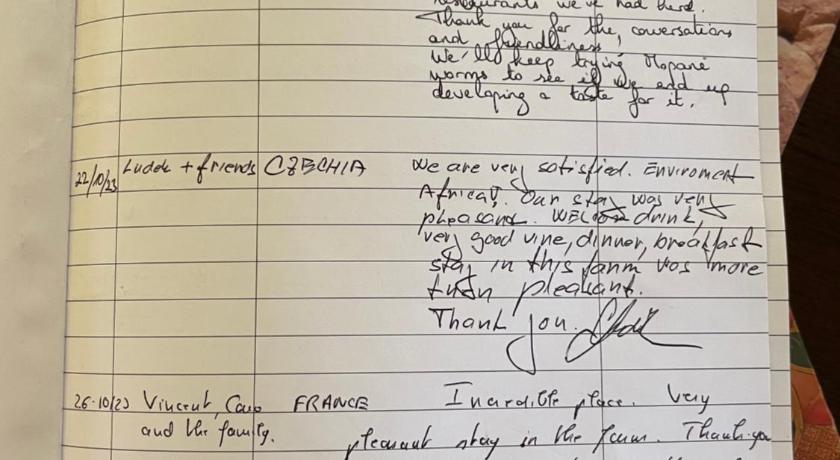 restaurants we've had here.
Thank you for the, conversations
and friendliness
We'll keep trying Mopané
worms to see if we end up
developing a taste for it.
22/10/23 Luděk + friends CZECHIA We are very satisfied. Enviroment
Africa! Our stay was very
pleasand. WELcom drink,
very good vine, dinner, breakfast
stay in this farm vos more
than pleasant.
Thank you.
26-10/23 Vincent, Caro FRANCE Incredible place. Very
and the family. pleasant stay in the farm. Thank you